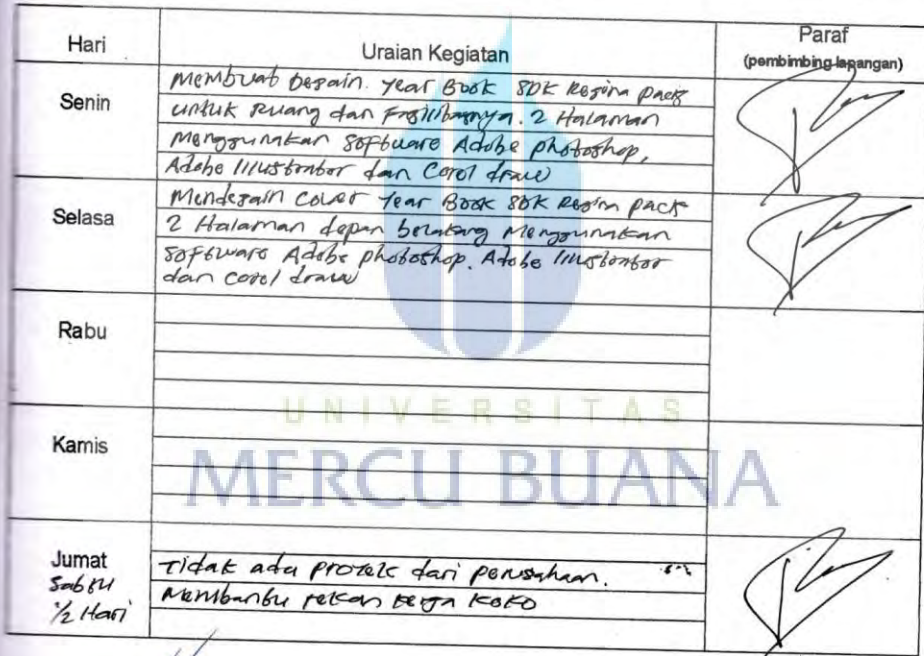 Hari
Uraian Kegiatan
Paraf
(pembimbing lapangan)
Senin
Membuat Desain. Year Book SDK Regina Pacis
untuk Ruang dan Fasilitasnya. 2 Halaman
Menggunakan Software Adobe photoshop,
Adobe Illustrator dan Corel draw
Selasa
Mendesain Cover Year Book SDK Regina Pacis
2 Halaman depan belakang Menggunakan
Software Adobe photoshop. Adobe Illustrator
dan Corel draw
Rabu
Kamis
UNIVERSITAS
MERCU BUANA
Jumat
Sabtu
1/2 Hari
Tidak ada proyek dari perusahaan.
Membantu rekan kerja KOKO